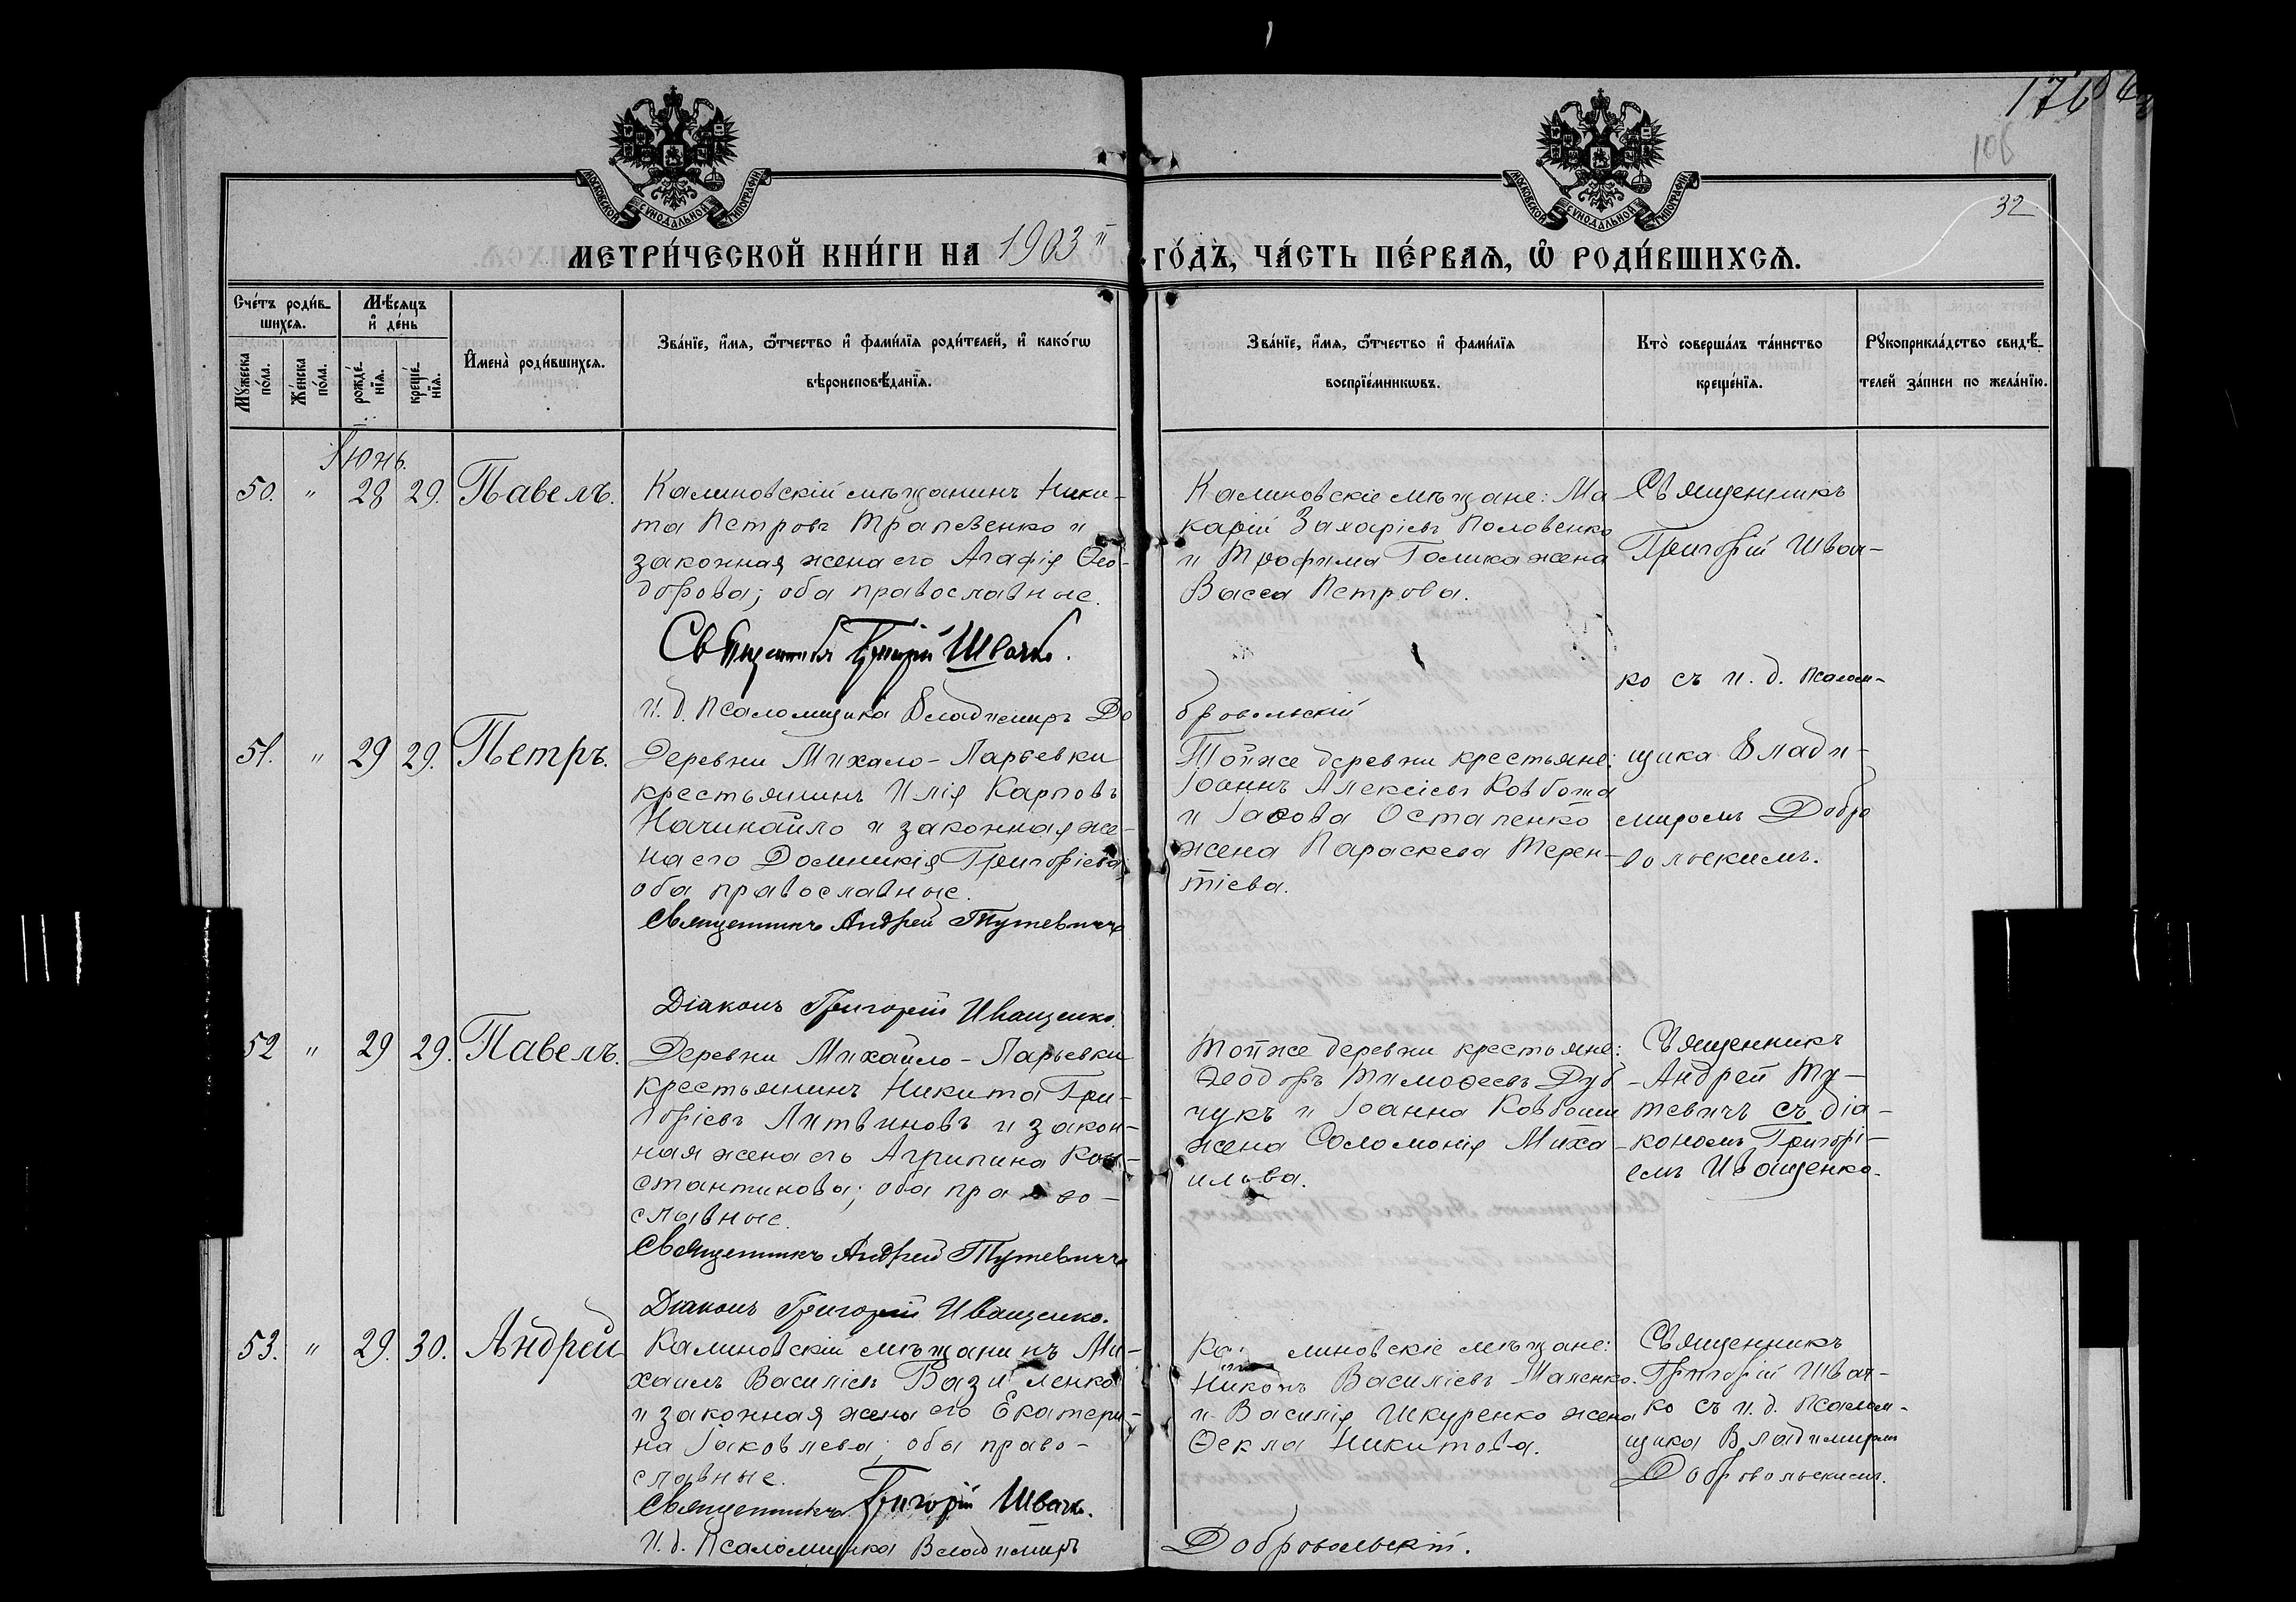 176
106
32
МОСКОВСКОЙ СѴНОДАЛЬНОЙ ТИПОГРАФІИ
МОСКОВСКОЙ СѴНОДАЛЬНОЙ ТИПОГРАФІИ
МЕТРИ́ЧЕСКОЙ КНИ́ГИ НА 1903й ГО́ДЪ, ЧА́СТЬ ПЕ́РВАѦ, Ѡ҆ РОДИ́ВШИХСѦ.
Сче́тъ роди́в-
шихсѧ.
Мѹ́жеска по́ла.
Же́нска по́ла.
Мѣ́сѧцъ
и҆ де́нь
рожде́-
нїѧ.
креще́-
нїѧ.
И҆мена̀ роди́вшихсѧ.
Зва́нїе, и҆́мѧ, ѻ҆́тчество и҆ фами́лїѧ роди́телей, и҆ како́гѡ
вѣроисповѣ́данїѧ.
Зва́нїе, и҆́мѧ, ѻ҆́тчество и҆ фами́лїѧ
воспрїе́мникѡвъ.
Кто̀ соверша́лъ та́инство
креще́нїѧ.
Рѹкоприкла́дство свидѣ́-
телей за́писи по жела́нїю.
Іюнь.
50. " 28 29. Павелъ.
Калиновскій мѣщанинъ Ники-
та Петровъ Трапезенко и
законная жена его Агафія Ѳео-
дорова; оба православные.
Священникъ Григорій Швачко.
И. д. Псаломщика Владимиръ До
бровольскій
Калиновскіе мѣщане: Ма
карій Захаріевъ Половенко
и Трофима Голика жена
Васса Петрова.
Священникъ
Григорій Швач-
ко съ и. д. Псалом-
щика Влади-
миромъ Добро
вольскимъ.
51. " 29 29. Петръ.
Деревни Михайло-Ларьевки
крестьянинъ Илія Карповъ
Начинайло и законная же-
на его Домникія Григоріева;
оба православные.
Священникъ Андрей Тутевичъ
Діаконъ Григорій Иващенко.
Тойже деревни крестьяне:
Іоаннъ Алексіевъ Ковбаша
и Іакова Остапенко
жена Параскева Терен-
тіева.
52 " 29 29. Павелъ.
Деревни Михайло-Ларьевки
крестьянинъ Никита Гри-
горіевъ Литвиновъ и закон-
ная жена его Агрипина Кон-
стантинова; оба право-
славные.
Священникъ Андрей Тутевичъ
Діаконъ Григорій Иващенко.
Тойже деревни крестьяне:
Ѳеодоръ Тимоѳеевъ Дуб-
чукъ и Іоанна Ковбаши
жена Соломонія Миха-
илова.
Священникъ
Андрей Ту-
тевичъ съ діа-
кономъ Григорі-
емъ Иващенко.
53. " 29. 30. Андрей
Калиновскій мѣщанинъ Ми-
хаилъ Василіевъ Базиленко
и законная жена его Екатери-
на Іаковлева; оба право-
славные.
Священникъ Григорій Швачко.
И. д. Псаломщика Владимиръ
Добровольскій.
Калиновскіе мѣщане:
Никонъ Василіевъ Маленко
и Василія Шкуренко жена
Ѳекла Никитова.
Священникъ
Григорій Швач-
ко съ и. д. Псалом-
щика Владимиромъ
Добровольскимъ.